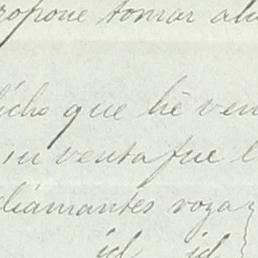 ropone tomar
icho que hé ven
su venta fue l
diamantes roza
id id